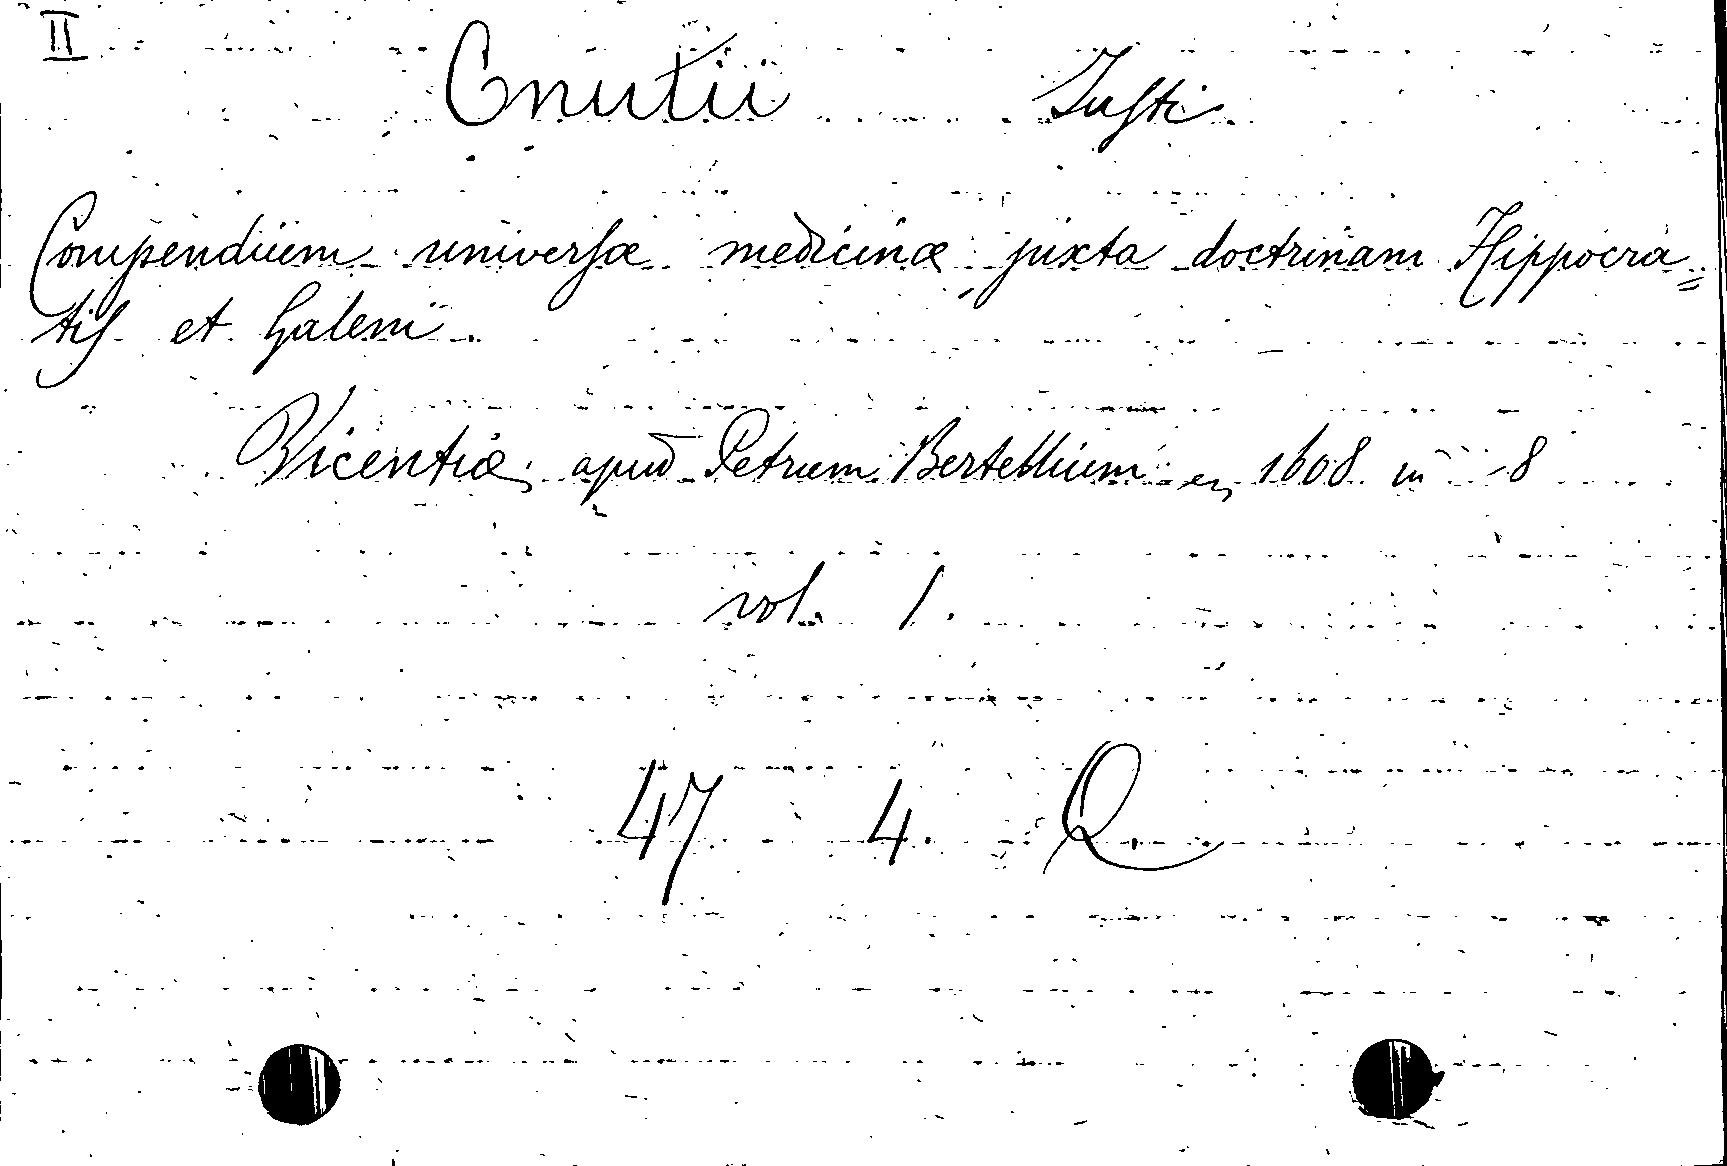 II
Cnutii Justi
Compendium universæ medicinæ juxta doctrinam Hippocra=
tis et Galeni
Vicentiæ, apud Petrum Bertellium en 1608 in -8
vol. 1.
47 4. Q